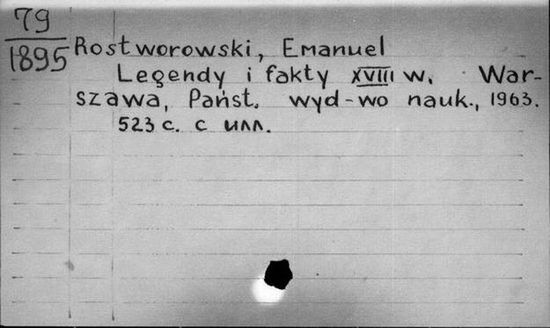 79
1895
Rostworowski, Emanuel
Legendy i fakty XVIII w. War-
szawa, Państ. wyd-wo nauk., 1963.
523 с. с илл.